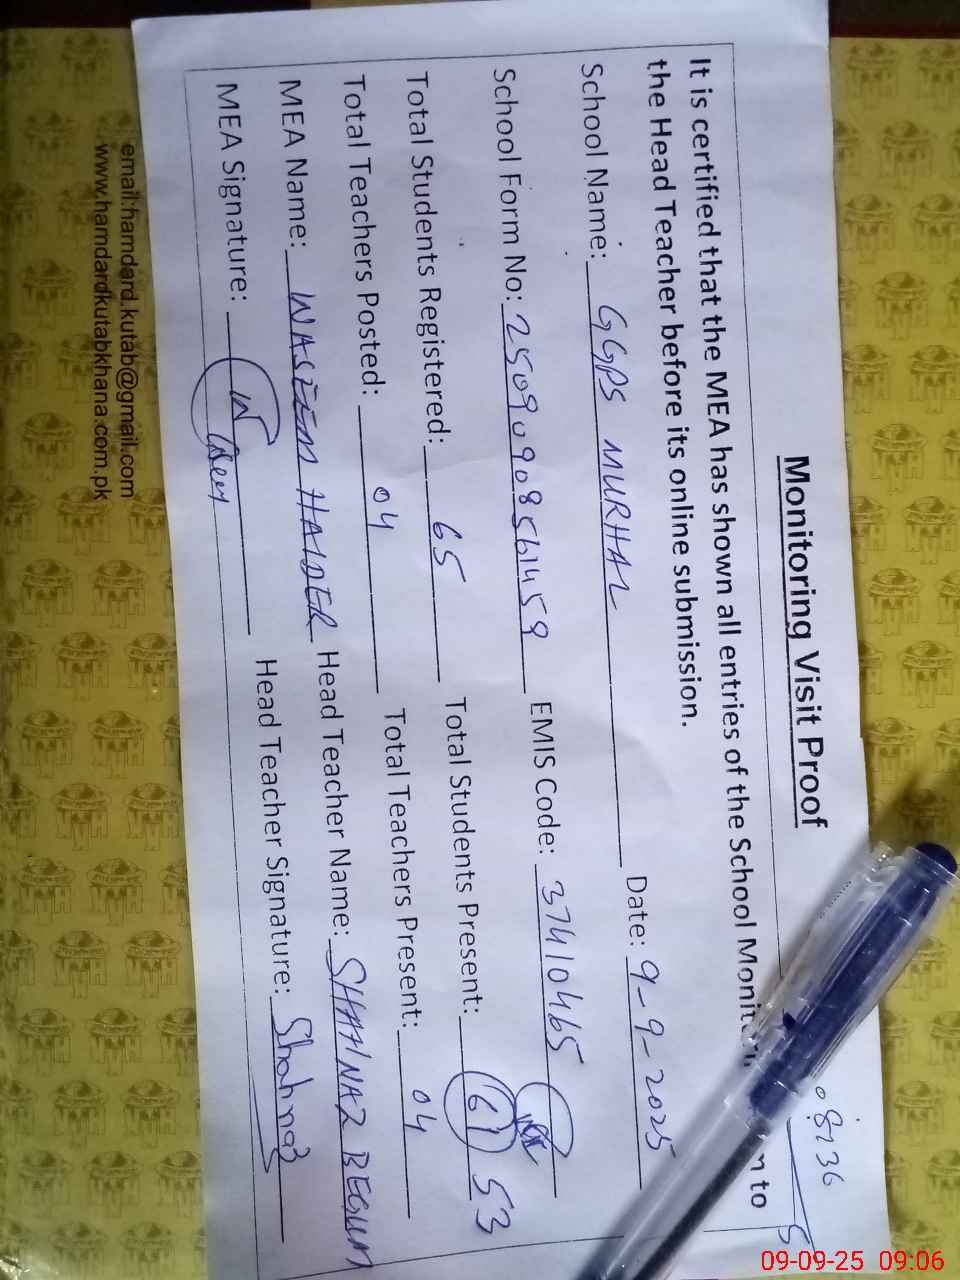 Monitoring Visit Proof
08736
It is certified that the MEA has shown all entries of the School to
the Head Teacher before its online submission.
School Name: GGPS MURHAL Date: 9-9-2025
School Form No: 25090908561459 EMIS Code: 37410465
Total Students Registered: 65 Total Students Present: 61 53
Total Teachers Posted: 04 Total Teachers Present: 04
MEA Name: WASEEM HAIDER Head Teacher Name: SHAHNAZ BEGUM
MEA Signature: Head Teacher Signature: Shahnaz
email:hamdard.kutab@gmail.com
www.hamdardkutabkhana.com.pk
09-09-25 09:06